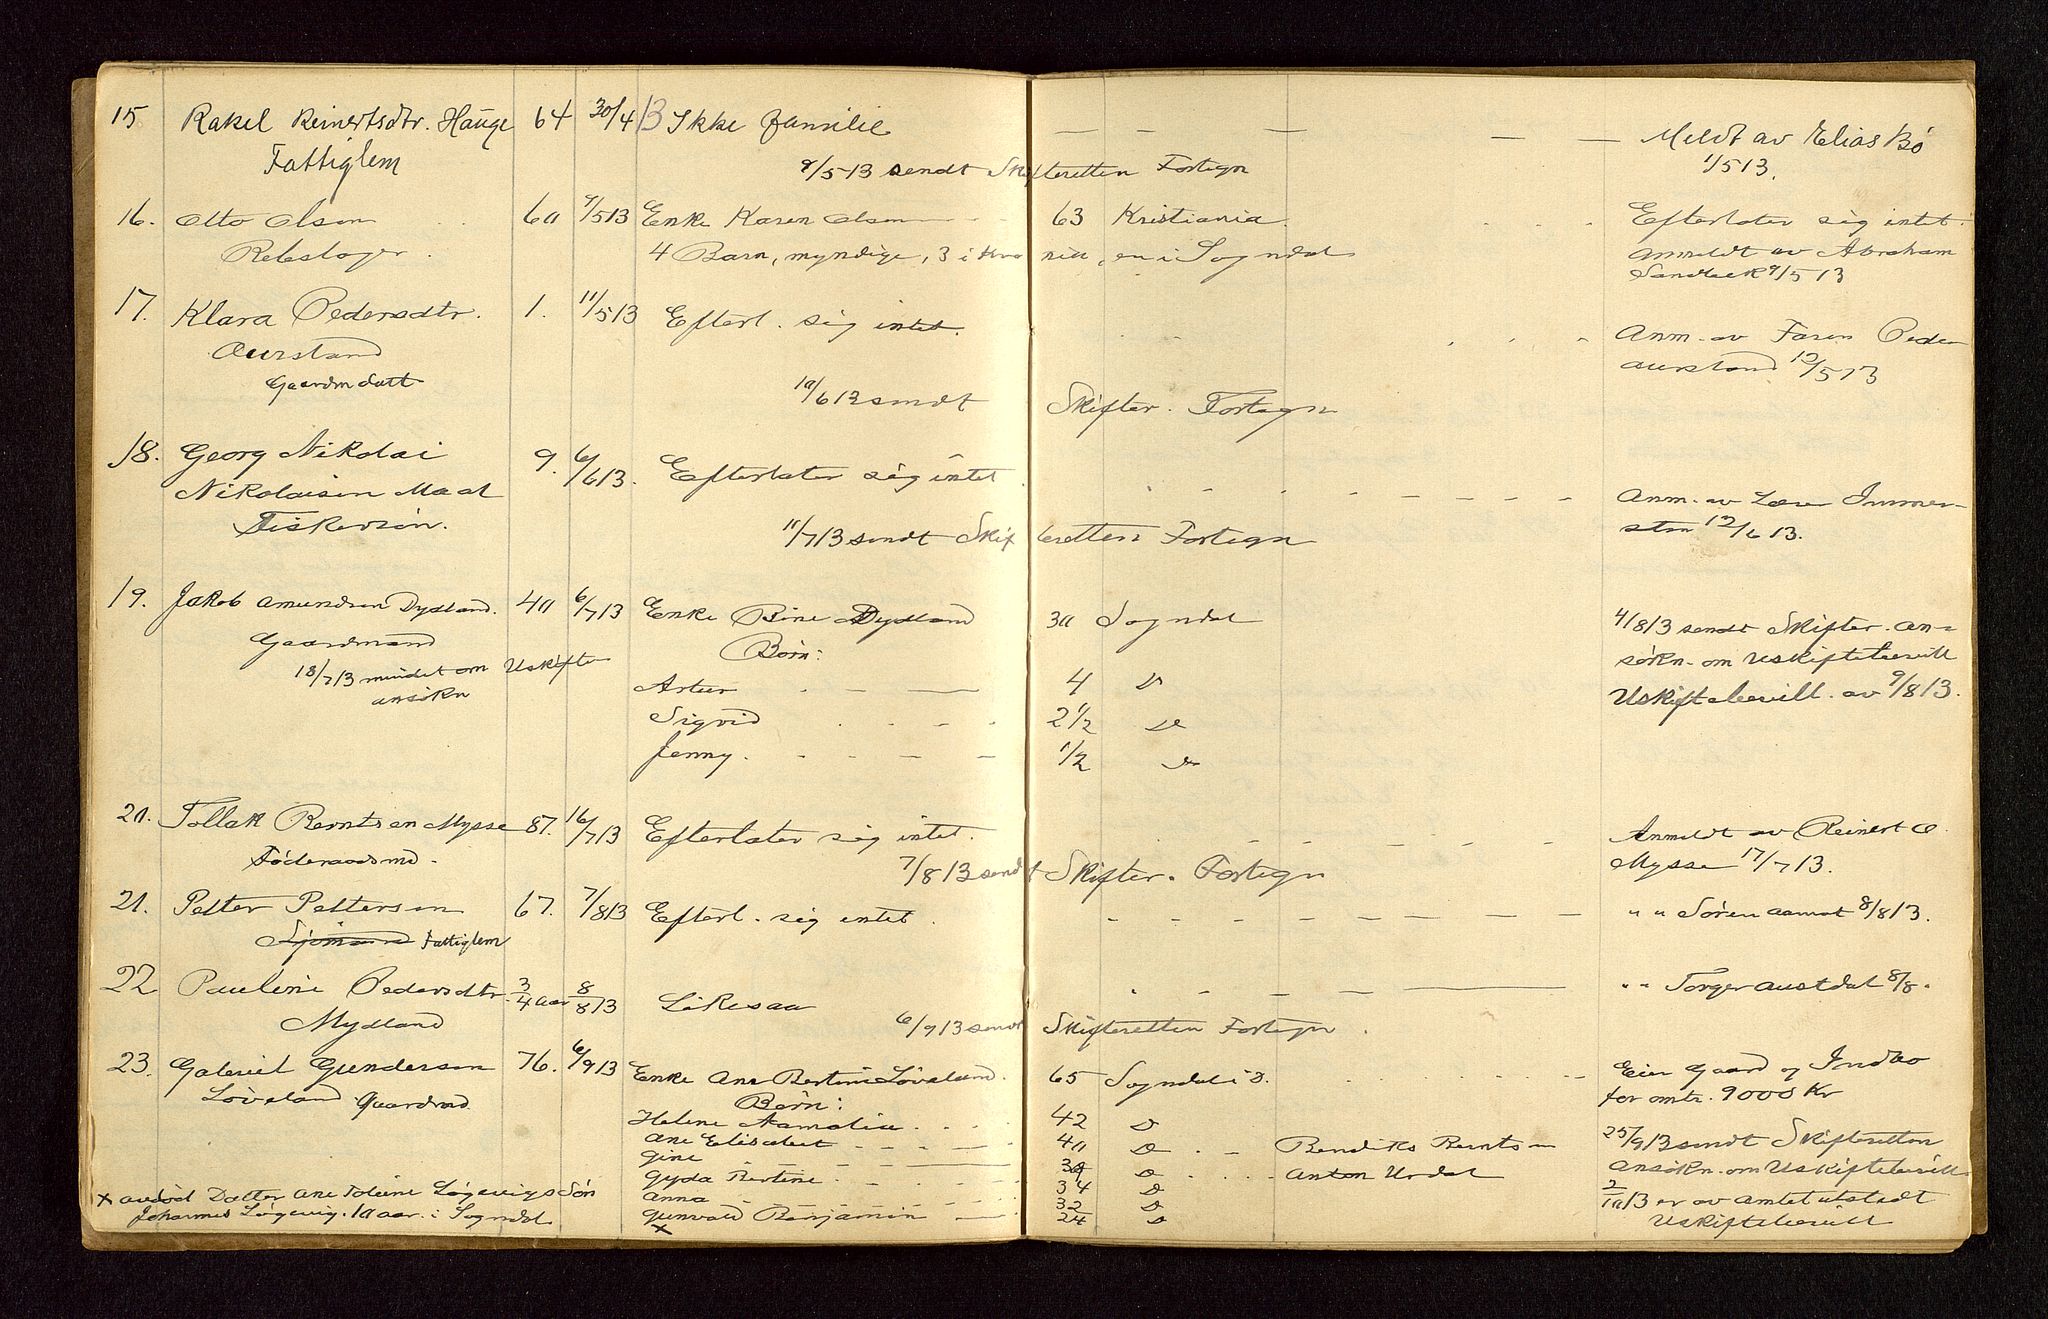 15 Rakel Reinertsdtr. Hauge 64 30/4 13 Ikke familie — — — — — Meldt av Elias Bö
Fattiglem 1/5 13.
9/5 13 sendt Skifteretten Fortegn
16. Otto Olsen 60 9/5 13 Enke Karen Olsen 63 Kristiania Efterlater sig intet.
Rebslager. 4 Barn, myndige, 3 i , en i Sogndal Anmeldt av Abraham
Sandbeck 9/5 13
17. Klara Pedersdtr. 1. 11/5 13 Efterl. sig intet. Anm. av Faren Peder
Aurstand Aurstand 12/5 13
Gaardm datt 10/6 13 sendt Skifter. Fortegn
18. Georg Nikolai 9. 6/6 13. Efterlater sig intet Anm. av Lærer Immer-
Nikolaisen Maal stein 12/6 13.
Fiskersön. 11/7 13 sendt Skifteretten Fortegn
19. Jakob Amundsen Dydland. 40 6/7 13 Enke Bine Dydland 30 Sogndal 4/8 13 sendt Skifter. an-
Gaardmand Börn: sökn. om Uskiftebevill
18/7 13 mindet om Uskifte Artur 4 D Uskiftebevill. av 9/8 13.
ansökn Sigvid 2 1/2 Do
Jenny. 1/2 Do
20. Tollak Berntsen Mysse 87. 16/7 13 Efterlater sig intet. Anmeldt av Reinert O.
Föderaadsmd. 7/8 13 sendt Skifter. Fortegn Mysse 17/7 13.
21. Petter Pettersen 67. 7/8 13 Efterl. sig intet. " " Sören Aamot 8/8 13.
Sjömand Fattiglem
22 Pauline Pedersdtr. 3/4 aar 8/8 13 Likesaa " " Torger Austdal 8/8.
Mydland 6/9 13 sendt Skifteretten Fortegn.
23. Gabriel Gundersen 76. 6/9 13 Enke Ane Bertine Lövland. 65 Sogndal i D. Eier Gaard og Indbo
Lövland Gaardmd Börn: for omtr. 9000 Kr
Helene Amalie 42 D 25/9 13 sendt Skifteretten
Ane Elisabet 40 D Bendiks Berntsen ansökn. om Uskiftebevill
Gine 39 D Anton Urdal
Gyda Bertine 34 D 2/10 13 er av Amtet utstedt
x avdöd Datter Ane Toline Lögevigs Sön Anna 32 D Uskiftebevill
Johannes Lögevig. 10 aar. i Sogndal Gunvald Benjamin 24 D
x